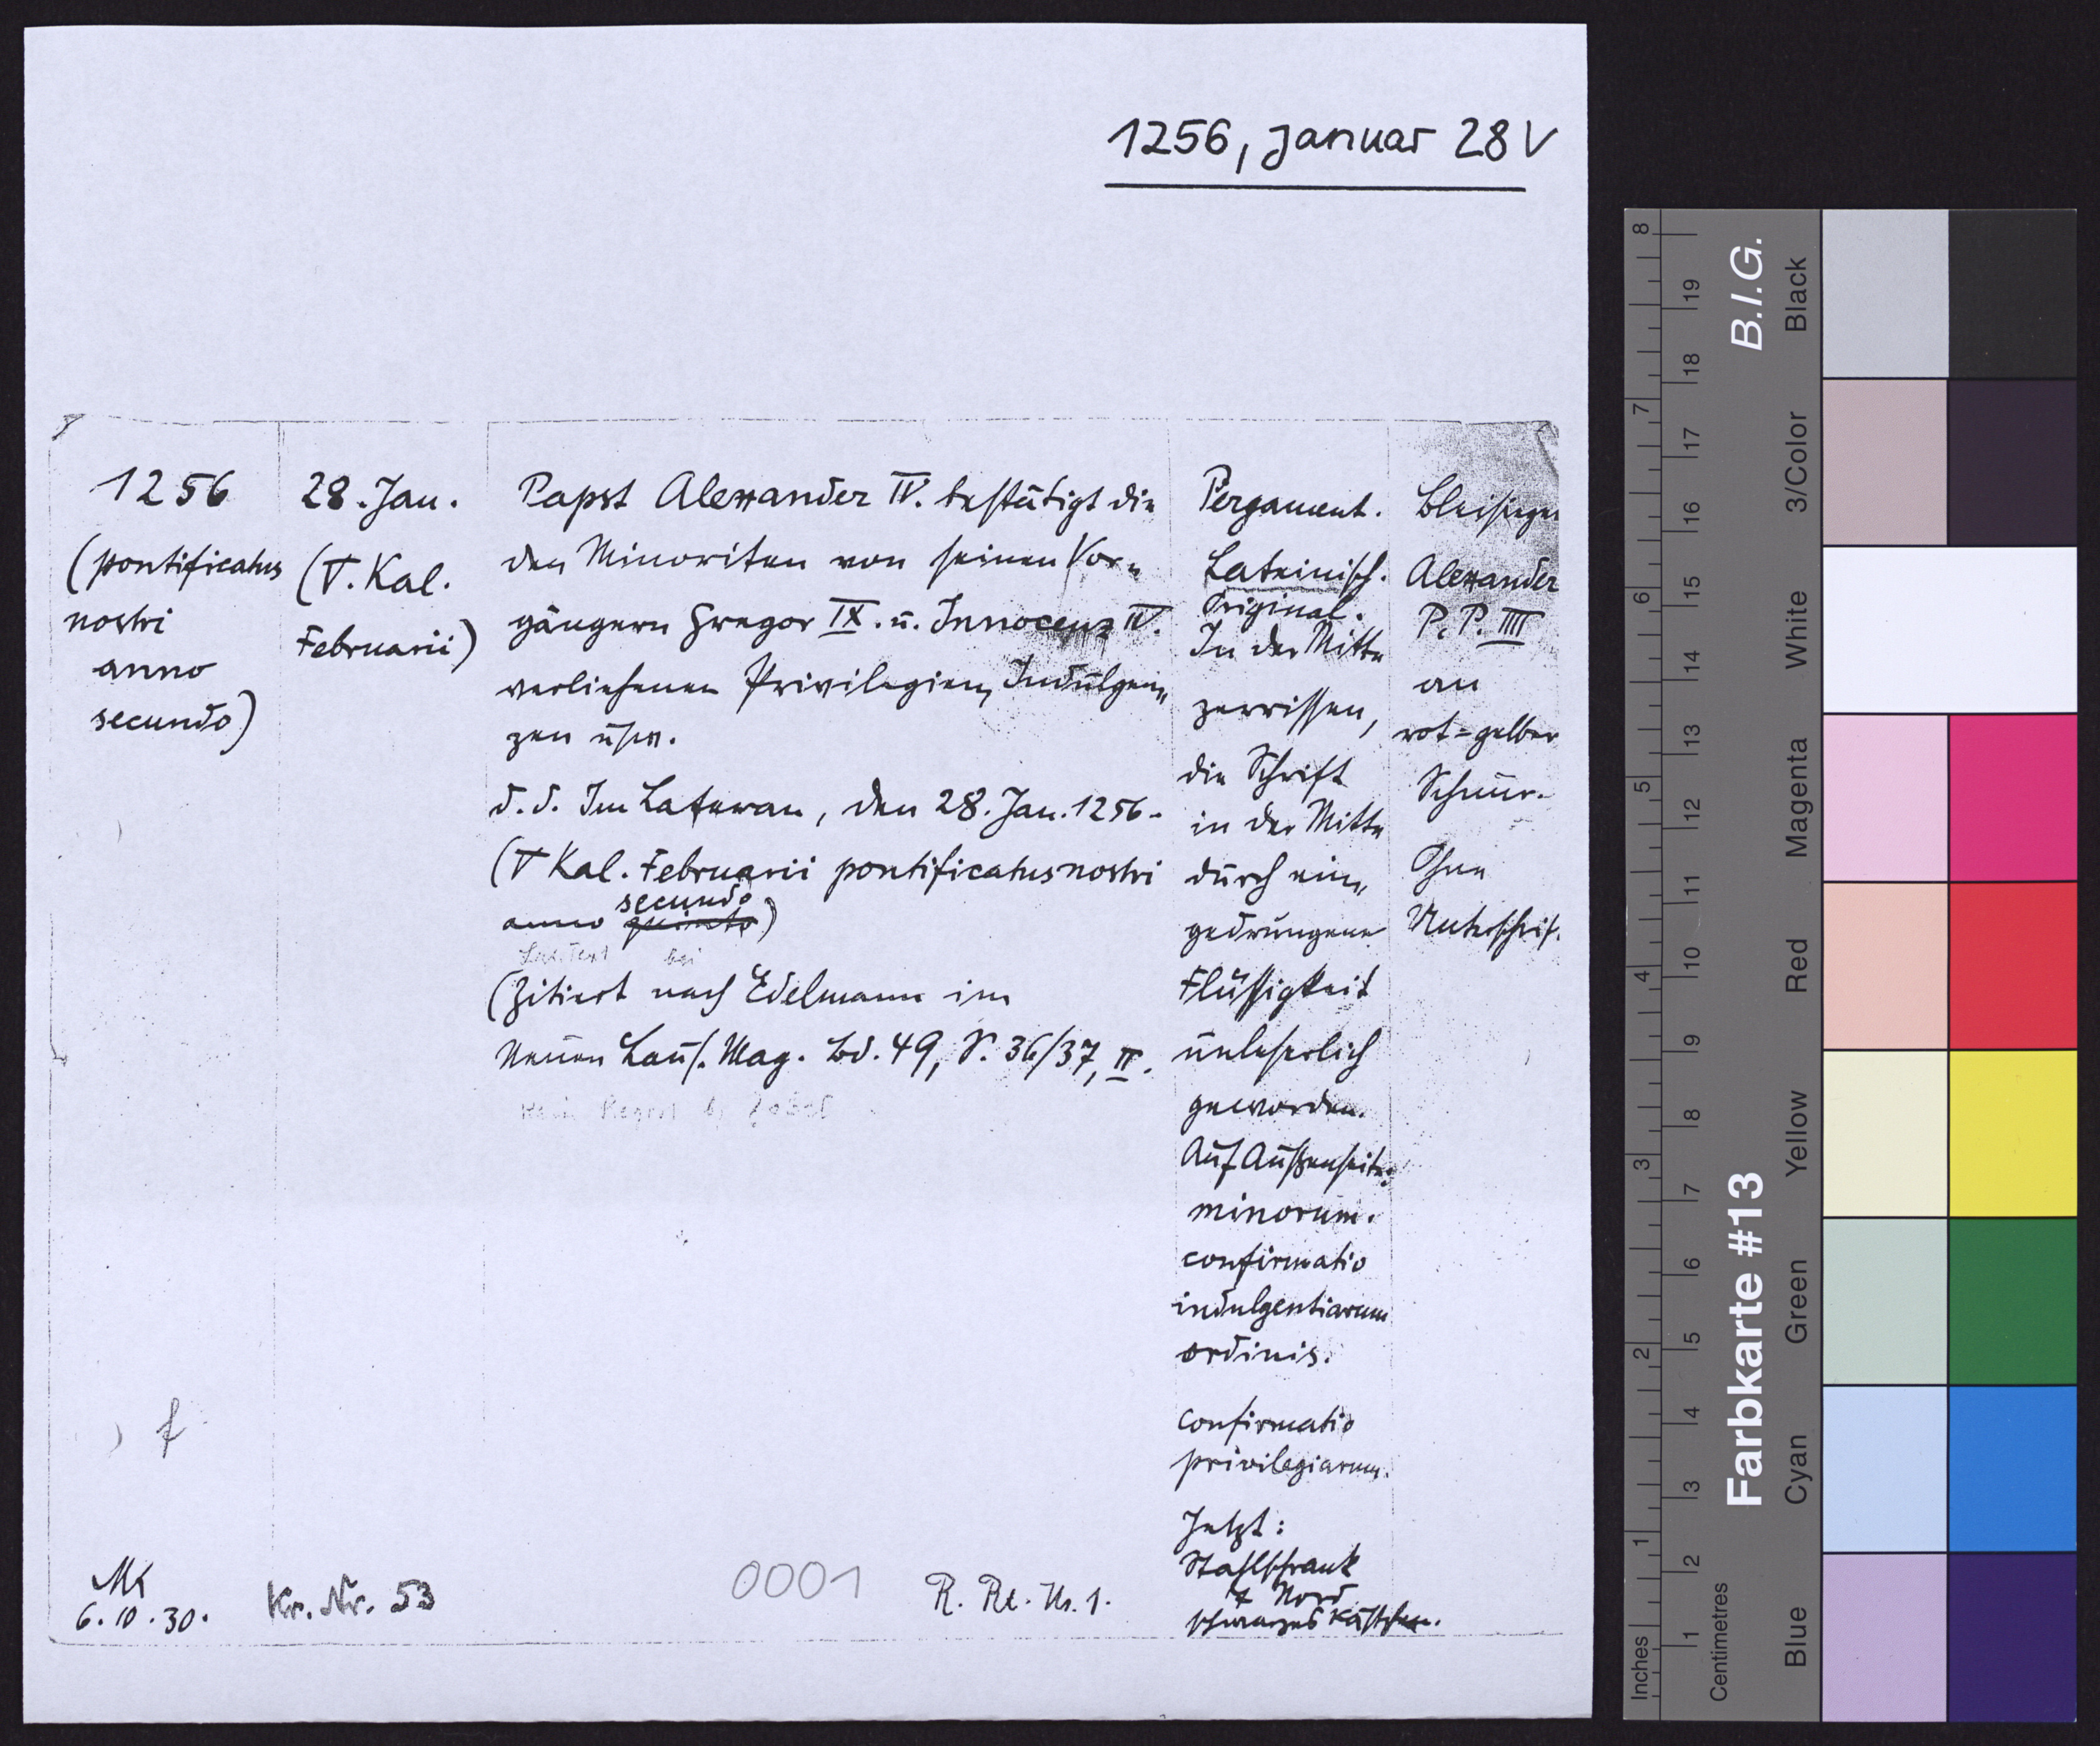 1256, Januar 28 V
1256
(pontificatus
nostri
anno
secundo)
28. Jan.
(V. Kal.
Februarii)
Papst Alexander IV. bestätigt die
den Minoriten von seinen Vor-
gängern Gregor IX. u. Innocenz IV.
verliehenen Privilegien, Indulgen-
zen usw.
d.d. Im Lateran, den 28. Jan. 1256.
(V Kal. Februarii pontificatus nostri
secundo
anno quinto)
Lat. Text bei
(Zitiert nach Edelmann im
Neuen Laus. Mag. Bd. 49, S. 36/37, II.
Kein Regest b.
Pergament.
Lateinisch.
Original.
In der Mitte
zerrissen,
die Schrift
in der Mitte
durch ein-
gedrungene
Flüssigkeit
unleserlich
geworden.
Auf Außenseite:
minorum.
confirmatio
indulgentiarum
ordinis.
Confirmatio
privilegiarum.
Jetzt:
Stahlschrank
Nord
schwarzes Kästchen.
Bleisiegel
Alexander
P. P. IIII
an
rot-gelber
Schnur.
Ohne
Unterschrif.
f
MK
6.10.30.
Kr. Nr. 53
0001
R. Rt. Nr. 1.
B.I.G.
Farbkarte #13
Black
3/Color
White
Magenta
Red
Yellow
Green
Cyan
Blue
Inches
1 2 3 4 5 6 7 8
Centimetres
1 2 3 4 5 6 7 8 9 10 11 12 13 14 15 16 17 18 19